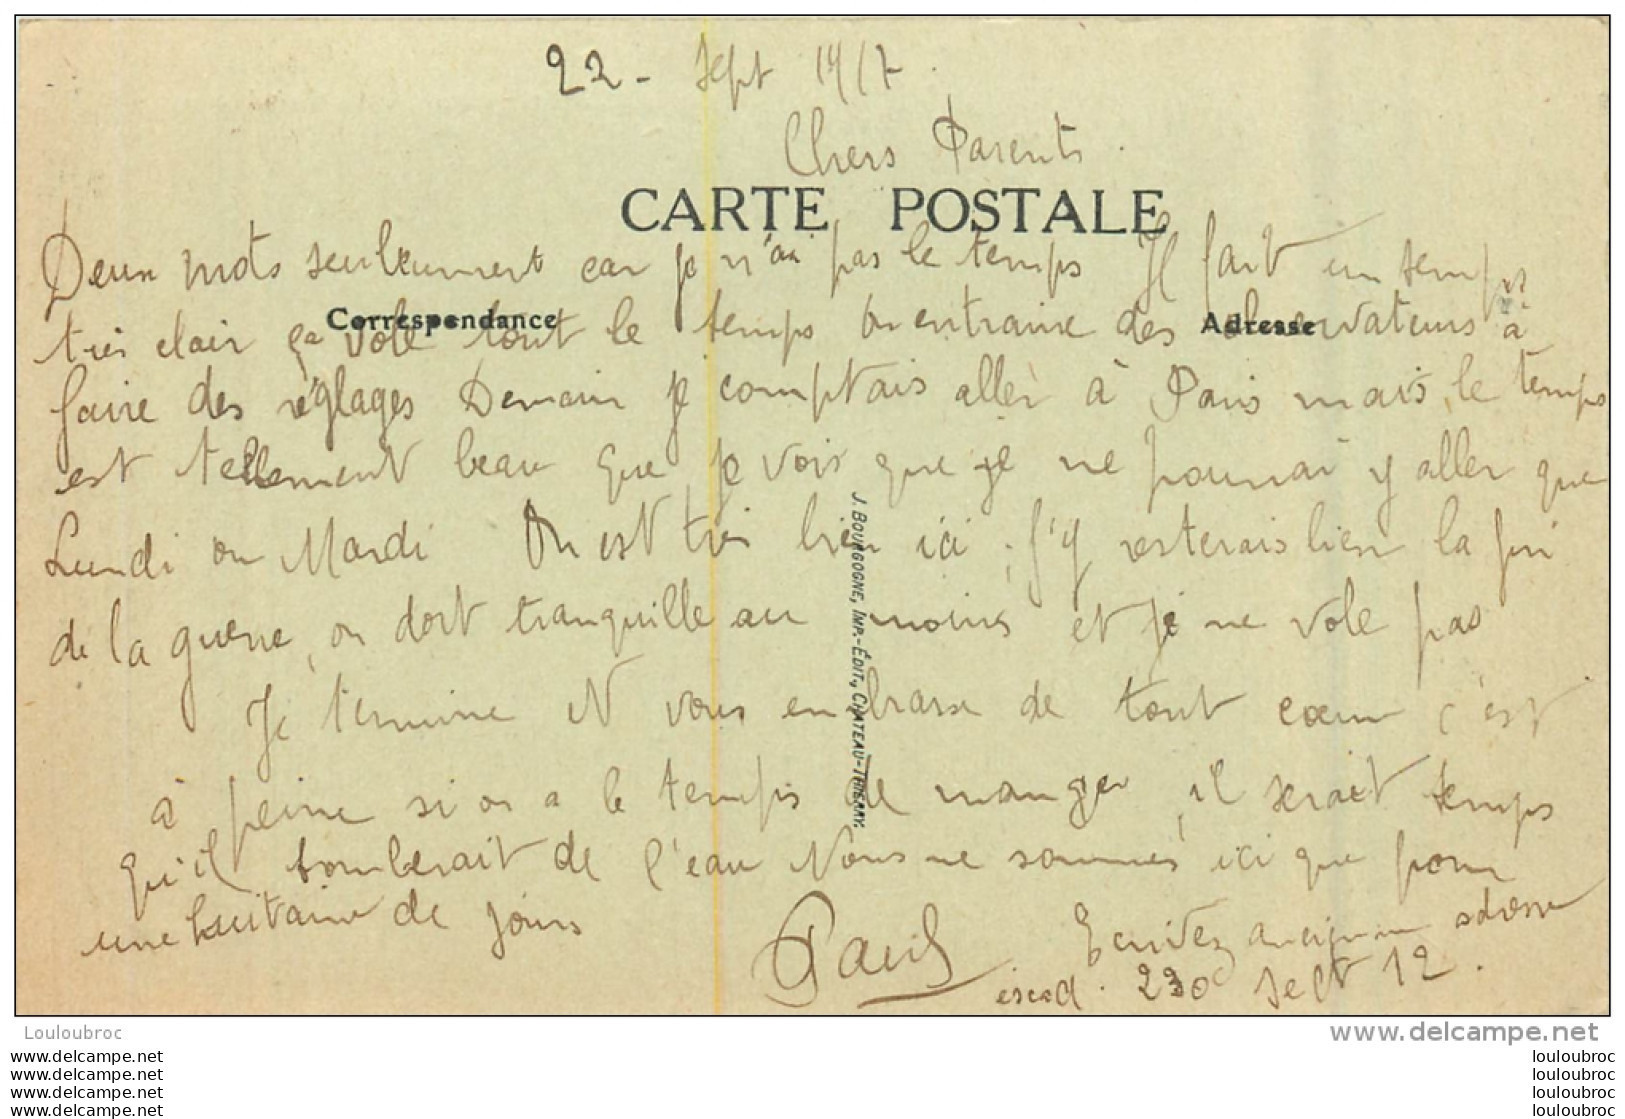 22 - Sept 1917.
Chers Parents.
CARTE POSTALE
Deux mots seulement car je n'ai pas le temps Il fait un temps
Correspondance
Adresse
très clair ça vole tout le temps On entraine des observateurs à
faire des réglages Demain je comptais aller à Paris mais le temps
est tellement beau que je vois que je ne pourrai y aller que
Lundi ou Mardi On est très bien ici, j'y resterais bien la fin
de la guerre, on dort tranquille au moins et je ne vole pas
Je termine et vous embrasse de tout cœur c'est
à peine si on a le temps de manger, il serait temps
qu'il tomberait de l'eau Nous ne sommes ici que pour
une huitaine de jours
Paul
Ecrivez ancienne adresse
escad. 230 Sect 12.
J. BOURGOGNE, IMP.-ÉDIT., CHATEAU-THIERRY.
Louloubroc
delcampe.net
www.delcampe.net
www.delcampe.net
www.delcampe.net
www.delcampe.net
louloubroc
louloubroc
louloubroc
louloubroc